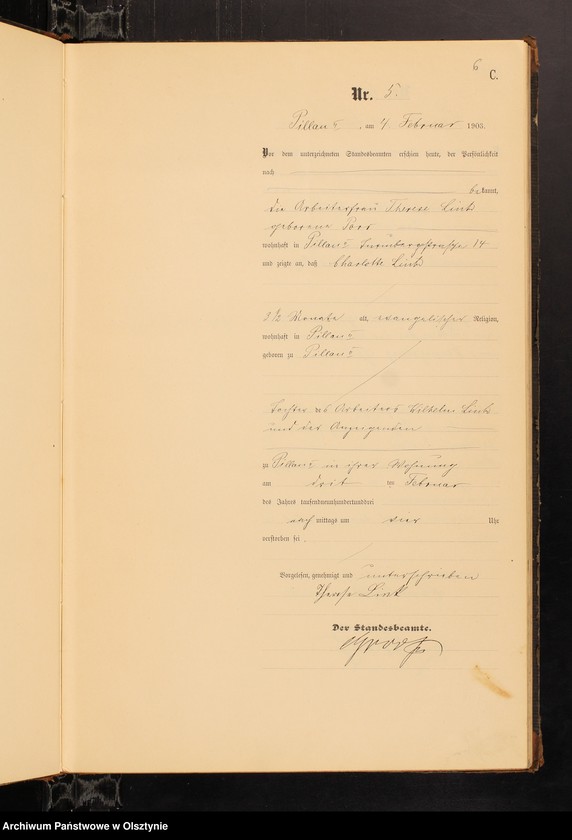 6
C.
Nr. 5.
Pillau I, am 4 Februar 1903.
Vor dem unterzeichneten Standesbeamten erschien heute, der Persönlichkeit
nach
bekannt,
die Arbeiterfrau Therese Link
geborene
wohnhaft in Pillau I 14
und zeigte an, daß Charlotte Link
3 1/2 Monate alt, evangelischer Religion,
wohnhaft in Pillau I
geboren zu Pillau I
Tochter des Arbeiters Wilhelm Link
und der Anzeigenden
zu Pillau I in ihrer Wohnung
am drit ten Februar
des Jahres tausendneunhundertunddrei
nach mittags um vier Uhr
verstorben sei.
Vorgelesen, genehmigt und unterschrieben
Therese Link
Der Standesbeamte.
Archiwum Państwowe w Olsztynie